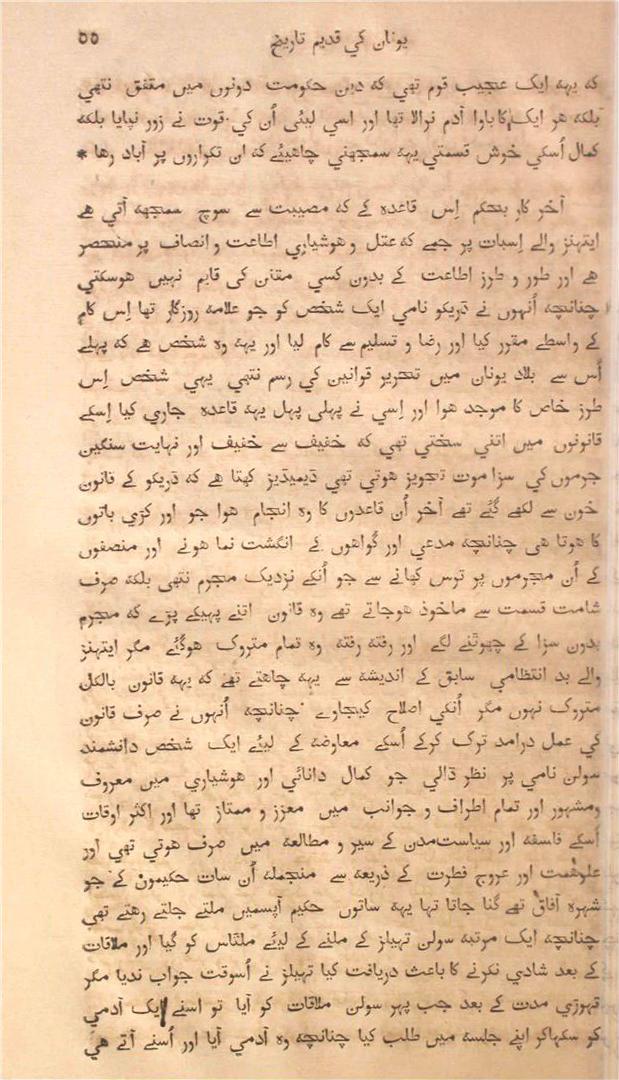 یونان کي قدیم تاریخ ٥٥
که یهه ایک عجیب قوم تهي که دین حکومت دونوں میں متفق نتهي
بلکه هر ایک کا باوا آدم نرالا تها اور اسي لیئی اُن کي قوت نے زور نپایا بلکه
کمال اُسکي خوش قسمتي یهه سمجهني چاهیئے که ان تکراروں پر آباد رها *
آخر کار بحکم اِس قاعده کے که مصیبت سے سوچ سمجهه آتي هے
ایتهنز والے اِسبات پر جمے که عقل و هوشیاري اطاعت و انصاف پر منحصر
هے اور طور و طرز اطاعت کے بدون کسي مقنن کی قایم نهیں هوسکتي
چنانچه اُنهوں نے ڈریکو نامي ایک شخص کو جو علامه روزگار تها اِس کام
کے واسطے مقرر کیا اور رضا و تسلیم سے کام لیا اور یهه وه شخص هے که پهلے
اُس سے بلاد یونان میں تحریر قوانین کي رسم نتهي یهي شخص اِس
طرز خاص کا موجد هوا اور اِسي نے پهلی پهل یهه قاعده جاري کیا اِسکے
قانونوں میں اتني سختي تهي که خفیف سے خفیف اور نهایت سنگین
جرموں کي سزا موت تجویز هوتي تهي ڈیمیڈیز کهتا هے که ڈریکو کے قانون
خون سے لکهے گئے تهے آخر اُن قاعدوں کا وه انجام هوا جو اور کڑي باتوں
کا هوتا هی چنانچه مدعي اور گواهوں کے انگشت نما هونے اور منصفوں
کے اُن مجرموں پر ترس کهانے سے جو اُنکے نزدیک مجرم نتهی بلکه صرف
شامت قسمت سے ماخوذ هوجاتے تهے وه قانون اتنے پهیکے پڑے که مجرم
بدون سزا کے چهوٹنے لگے اور رفته رفته وه تمام متروک هوگئے مگر ایتهنز
والے بد انتظامي سابق کے اندیشه سے یهه چاهتے تهے که یهه قانون بالکل
متروک نهوں مگر اُنکي اصلاح کیجاوے چنانچه اُنهوں نے صرف قانون
کي عمل درامد ترک کرکے اُسکے معاوضه کے لیئے ایک شخص دانشمند
سولن نامي پر نظر ڈالي جو کمال دانائي اور هوشیاري میں معروف
ومشهور اور تمام اطراف و جوانب میں معزز و ممتاز تها اور اکثر اوقات
اُسکے فلسفه اور سیاست مدن کے سیر و مطالعه میں صرف هوتي تهي اور
علوهمت اور عروج فطرت کے ذریعه سے منجمله اُن سات حکیموں کے جو
شهره آفاق تهے گنا جاتا تها یهه ساتوں حکیم آپسمیں ملتے جلتے رهتے تهی
چنانچه ایک مرتبه سولن تهیلز کے ملنے کے لیئے ملٹاس کو گیا اور ملاقات
کے بعد شادي نکرنے کا باعث دریافت کیا تهیلز نے اُسوقت جواب ندیا مگر
تهوڑي مدت کے بعد جب پهر سولن ملاقات کو آیا تو اسنے ایک آدمي
کو سکهاکر اپنے جلسه میں طلب کیا چنانچه وه آدمي آیا اور اُسنے آتے هي